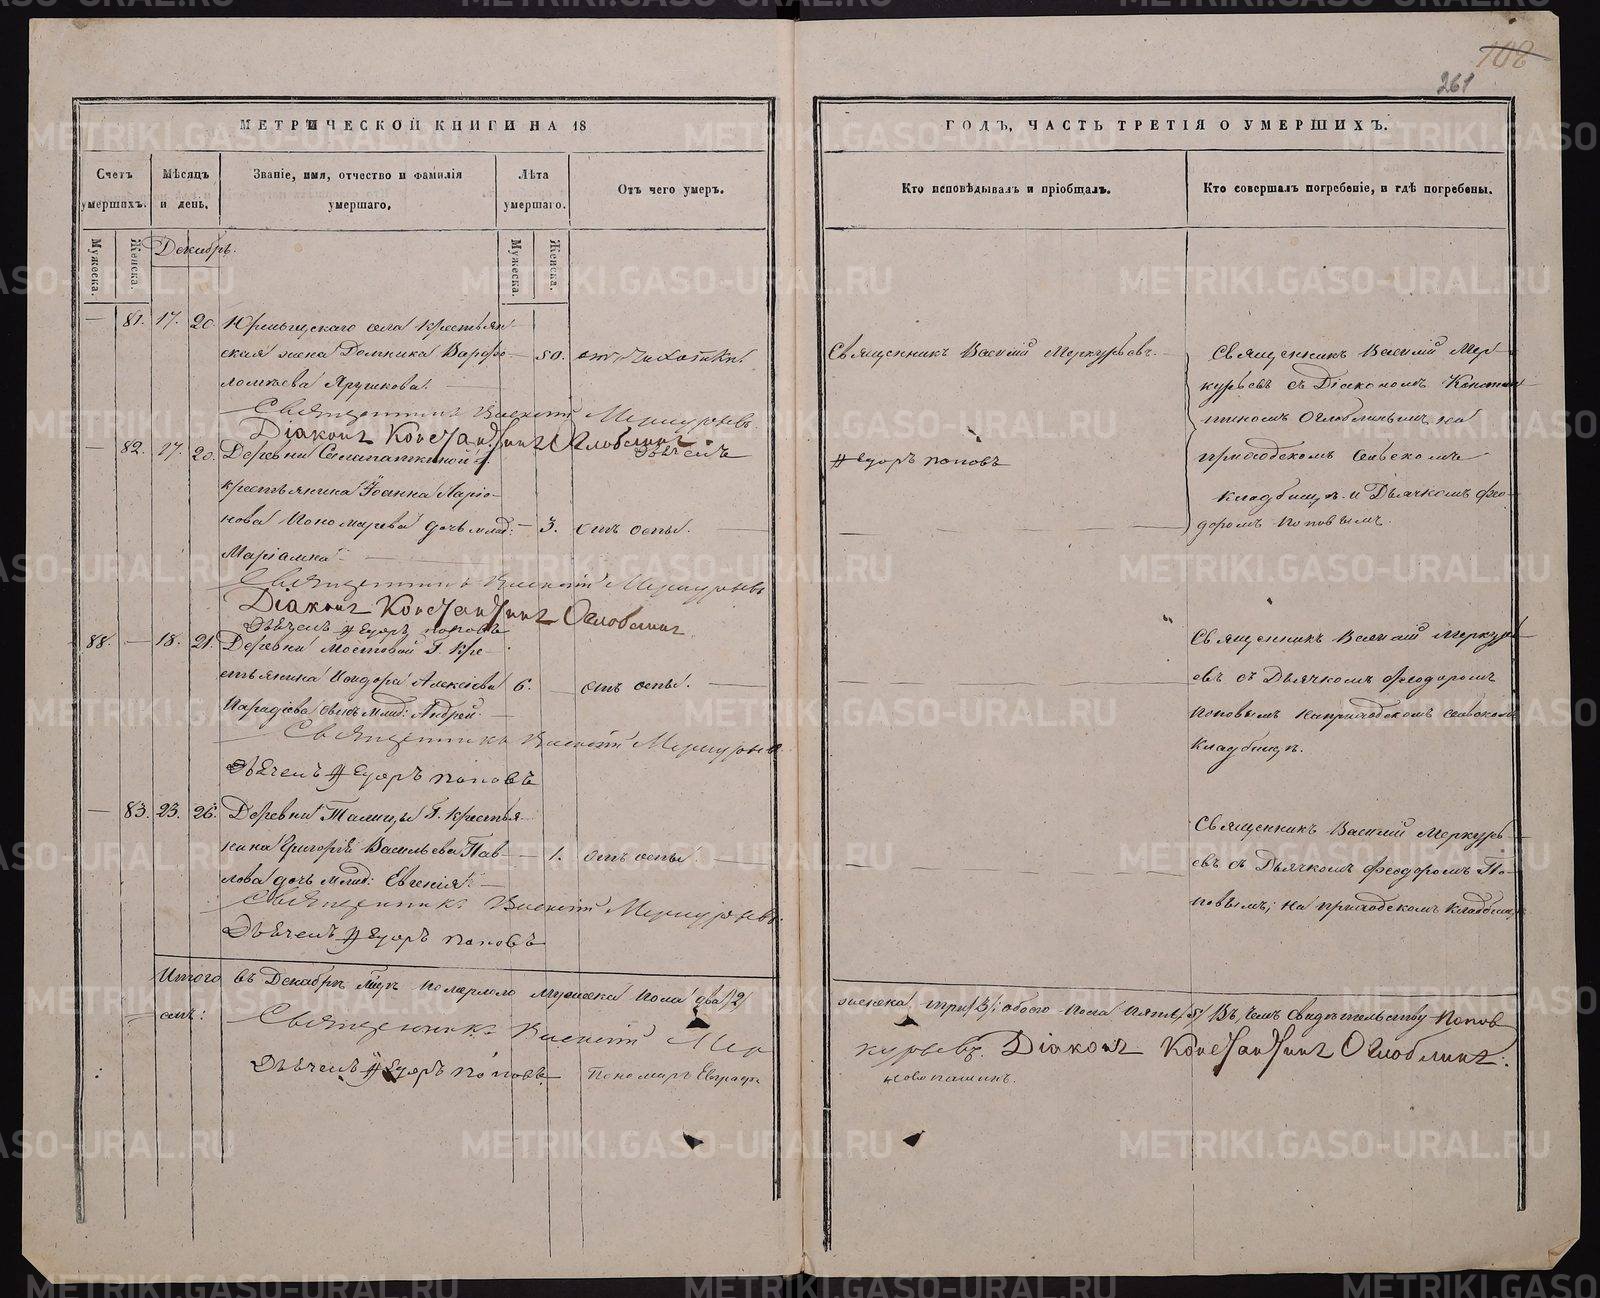 102
261
МЕТРИЧЕСКОЙ КНИГИ НА 18
ГОДЪ, ЧАСТЬ ТРЕТІЯ О УМЕРШИХЪ.
Счетъ умершихъ.
Мѣсяцъ и день.
Званіе, имя, отчество и фамилія умершаго.
Лѣта умершаго.
Отъ чего умеръ.
Кто исповѣдывалъ и пріобщалъ.
Кто совершалъ погребеніе, и гдѣ погребены.
Мужеска.
Женска.
Декабрь.
Мужеска.
Женска.
— 81. 17. 20. села крестьян-
ская жена Домника Варѳо- — 50. отъ чахотки.
ломѣева Ярушкова.
Священникъ Василій Меркурьевъ.
Діаконъ Константинъ Оглоблинъ
Дьячекъ
Ѳедоръ Поповъ
Священникъ Василій Меркурьевъ.
Священникъ Василій Мер-
курьевъ съ Діакономъ Констан-
тиномъ Оглоблинымъ, на
приходскомъ
кладбищѣ. и Дьячкомъ Ѳео-
доромъ Поповымъ.
— 82. 17. 20. Деревни
крестьянина Іоанна Ларіо-
нова Пономарева дочь млад: — 3. отъ оспы.
Маріамна
Священникъ Василій Меркурьевъ
Діаконъ Константинъ Оглоблинъ
Дьячекъ Ѳедоръ Поповъ
88. — 18. 21. Деревни Мостовой Г. кре-
стьянина Исидора Алексіева 6. — отъ оспы.
сынъ млад: Андрей.
Священникъ Василій Меркурьевъ
Дьячекъ Ѳедоръ Поповъ
Священникъ Василій Меркурь-
евъ съ Дьячкомъ Ѳеодоромъ
Поповымъ на приходскомъ
кладбищѣ.
— 83. 23. 26. Деревни Талицы Г. крестья-
нина Григорія Васильева Пав- — 1. отъ оспы.
лова дочь млад: Евгенія.
Священникъ Василій Меркурьевъ.
Дьячекъ Ѳедоръ Поповъ
Священникъ Василій Меркурь-
евъ съ Дьячкомъ Ѳеодоромъ По-
повымъ; на приходскомъ кладбищѣ
Итого въ Декабрѣ м-цѣ померло мужеска пола два /2/
женска три /3/ обоего пола пять /5/ Въ чемъ свидѣтельствую
Священникъ Василій Мер
курьевъ. Діаконъ Константинъ Оглоблинъ:
Дьячекъ Ѳедоръ Поповъ. Пономарь Евграфъ
Новопашинъ.
METRIKI.GASO-URAL.RU